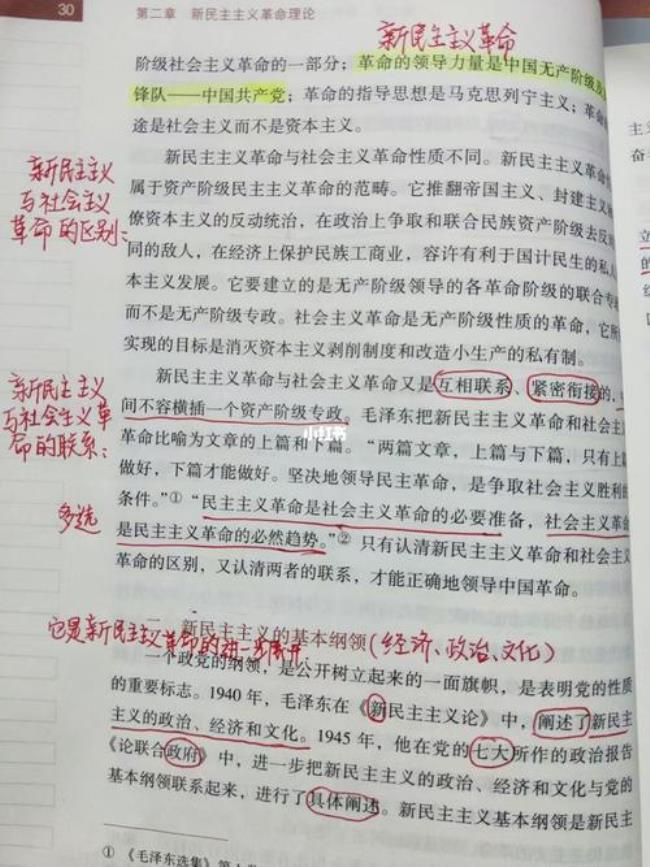 30
第二章 新民主主义革命理论
新民主主义革命
阶级社会主义革命的一部分；革命的领导力量是中国无产阶级及
锋队——中国共产党；革命的指导思想是马克思列宁主义；革命
途是社会主义而不是资本主义。
新民主主义革命与社会主义革命性质不同。新民主主义革命
属于资产阶级民主主义革命的范畴。它推翻帝国主义、封建主义
僚资本主义的反动统治，在政治上争取和联合民族资产阶级去反
同的敌人，在经济上保护民族工商业，容许有利于国计民生的私
本主义发展。它要建立的是无产阶级领导的各革命阶级的联合专
而不是无产阶级专政。社会主义革命是无产阶级性质的革命，它所
实现的目标是消灭资本主义剥削制度和改造小生产的私有制。
新民主主义
与社会主义
革命的区别：
新民主主义革命与社会主义革命又是互相联系、紧密衔接的，
间不容横插一个资产阶级专政。毛泽东把新民主主义革命和社会主
革命比喻为文章的上篇和下篇。“两篇文章，上篇与下篇，只有上
做好，下篇才能做好。坚决地领导民主革命，是争取社会主义胜利的
条件。”① “民主主义革命是社会主义革命的必要准备，社会主义革命
是民主主义革命的必然趋势。”② 只有认清新民主主义革命和社会主义
革命的区别，又认清两者的联系，才能正确地领导中国革命。
新民主主义
与社会主义革
命的联系：
多选
小红书
二、新民主主义的基本纲领
(经济、政治、文化)
它是新民主主义革命的进一步展开
一个政党的纲领，是公开树立起来的一面旗帜，是表明党的性质
的重要标志。1940 年，毛泽东在《新民主主义论》中，阐述了新民主
主义的政治、经济和文化。1945 年，他在党的七大所作的政治报告
《论联合政府》中，进一步把新民主主义的政治、经济和文化与党的
基本纲领联系起来，进行了具体阐述。新民主主义基本纲领是新民主
① 《毛泽东选集》第
主
奋
立
的